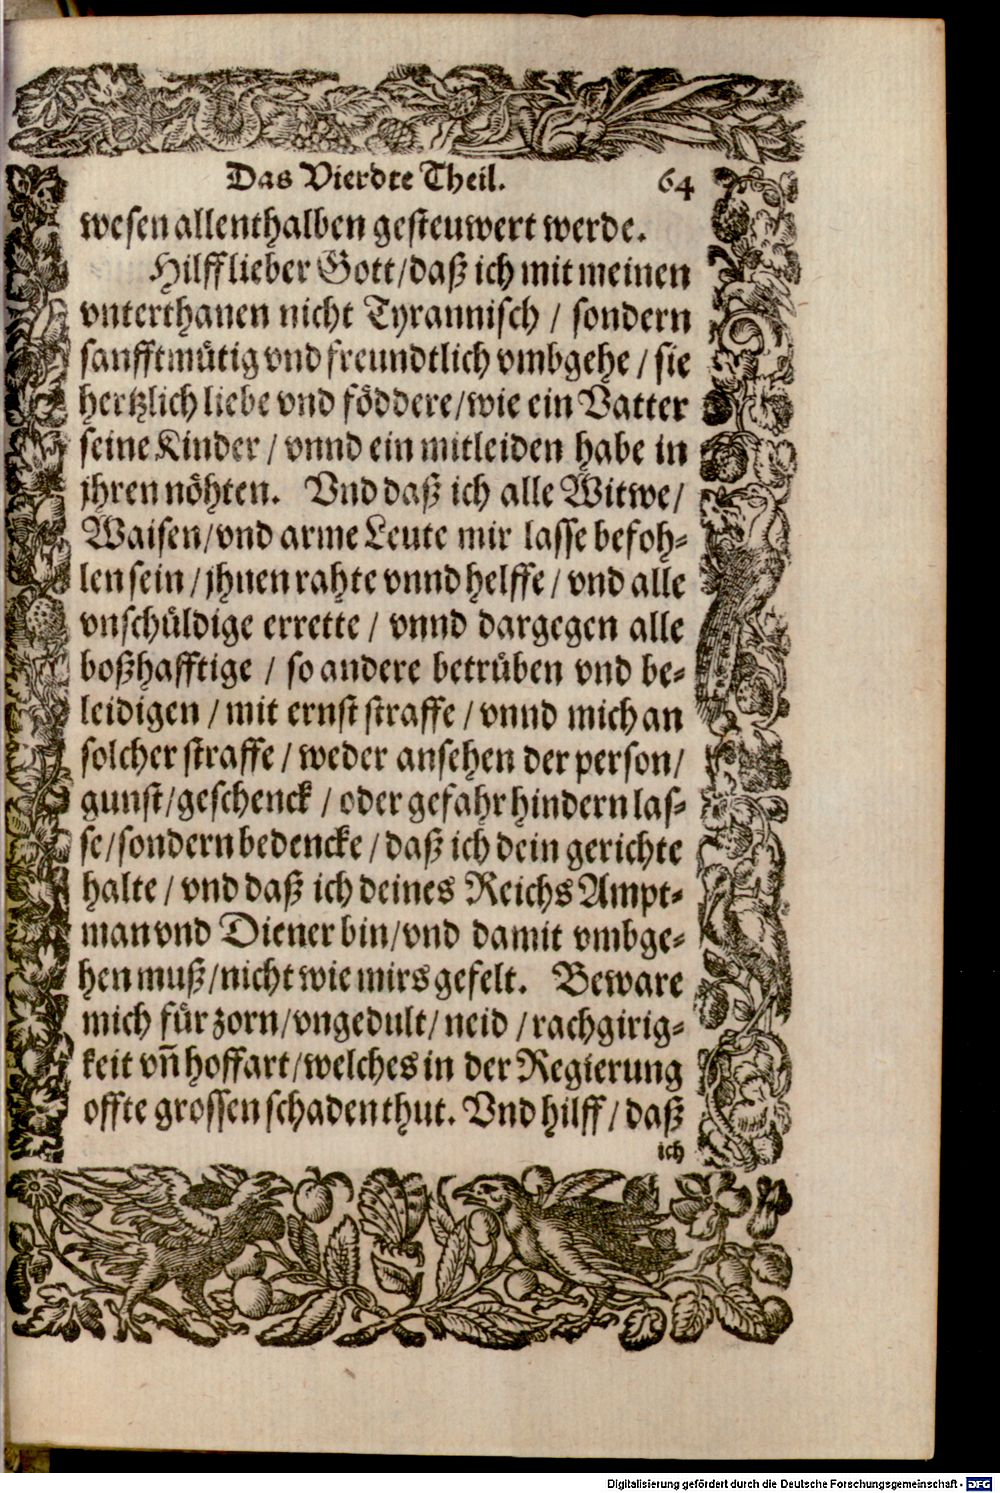 Das Vierdte Theil. 64
wesen allenthalben gesteuwert werde.
Hilff lieber Gott/daß ich mit meinen
vnterthanen nicht Tyrannisch / sondern
sanfftmütig vnd freundtlich vmbgehe / sie
hertzlich liebe vnd föddere/wie ein Vatter
seine Kinder / vnnd ein mitleiden habe in
jhren nöhten. Vnd daß ich alle Witwe/
Waisen/vnd arme Leute mir lasse befoh-
len sein / jhnen rahte vnnd helffe / vnd alle
vnschüldige errette / vnnd dargegen alle
boßhafftige / so andere betrüben vnd be-
leidigen / mit ernst straffe / vnnd mich an
solcher straffe / weder ansehen der person/
gunst/geschenck / oder gefahr hindern las-
se/sondern bedencke / daß ich dein gerichte
halte / vnd daß ich deines Reichs Ampt-
man vnd Diener bin/vnd damit vmbge-
hen muß/nicht wie mirs gefelt. Beware
mich für zorn/vngedult/ neid / rachgirig-
keit vñ hoffart/welches in der Regierung
offte grossen schaden thut. Vnd hilff / daß
ich
Digitalisierung gefördert durch die Deutsche Forschungsgemeinschaft - DFG